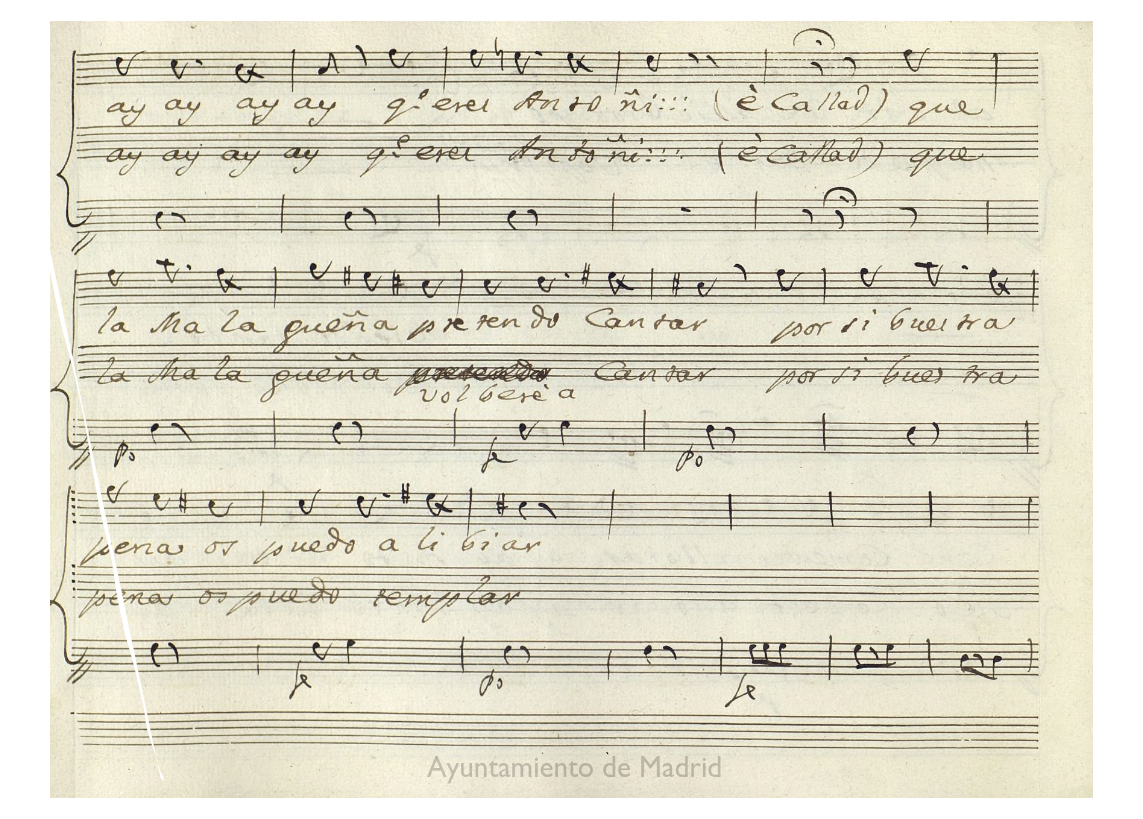 ay ay ay ay q.e eres Anto ñi::: (è Callad) que
ay ay ay ay q.e eres Antoñi::: (è Callad) que
la Mala gueña pretendo Cantar por si buestra
la Mala gueña Cantar por si buestra
volberè a
po fe po
pena os puedo a libiar
pena os puedo templar
fe po fe
Ayuntamiento de Madrid